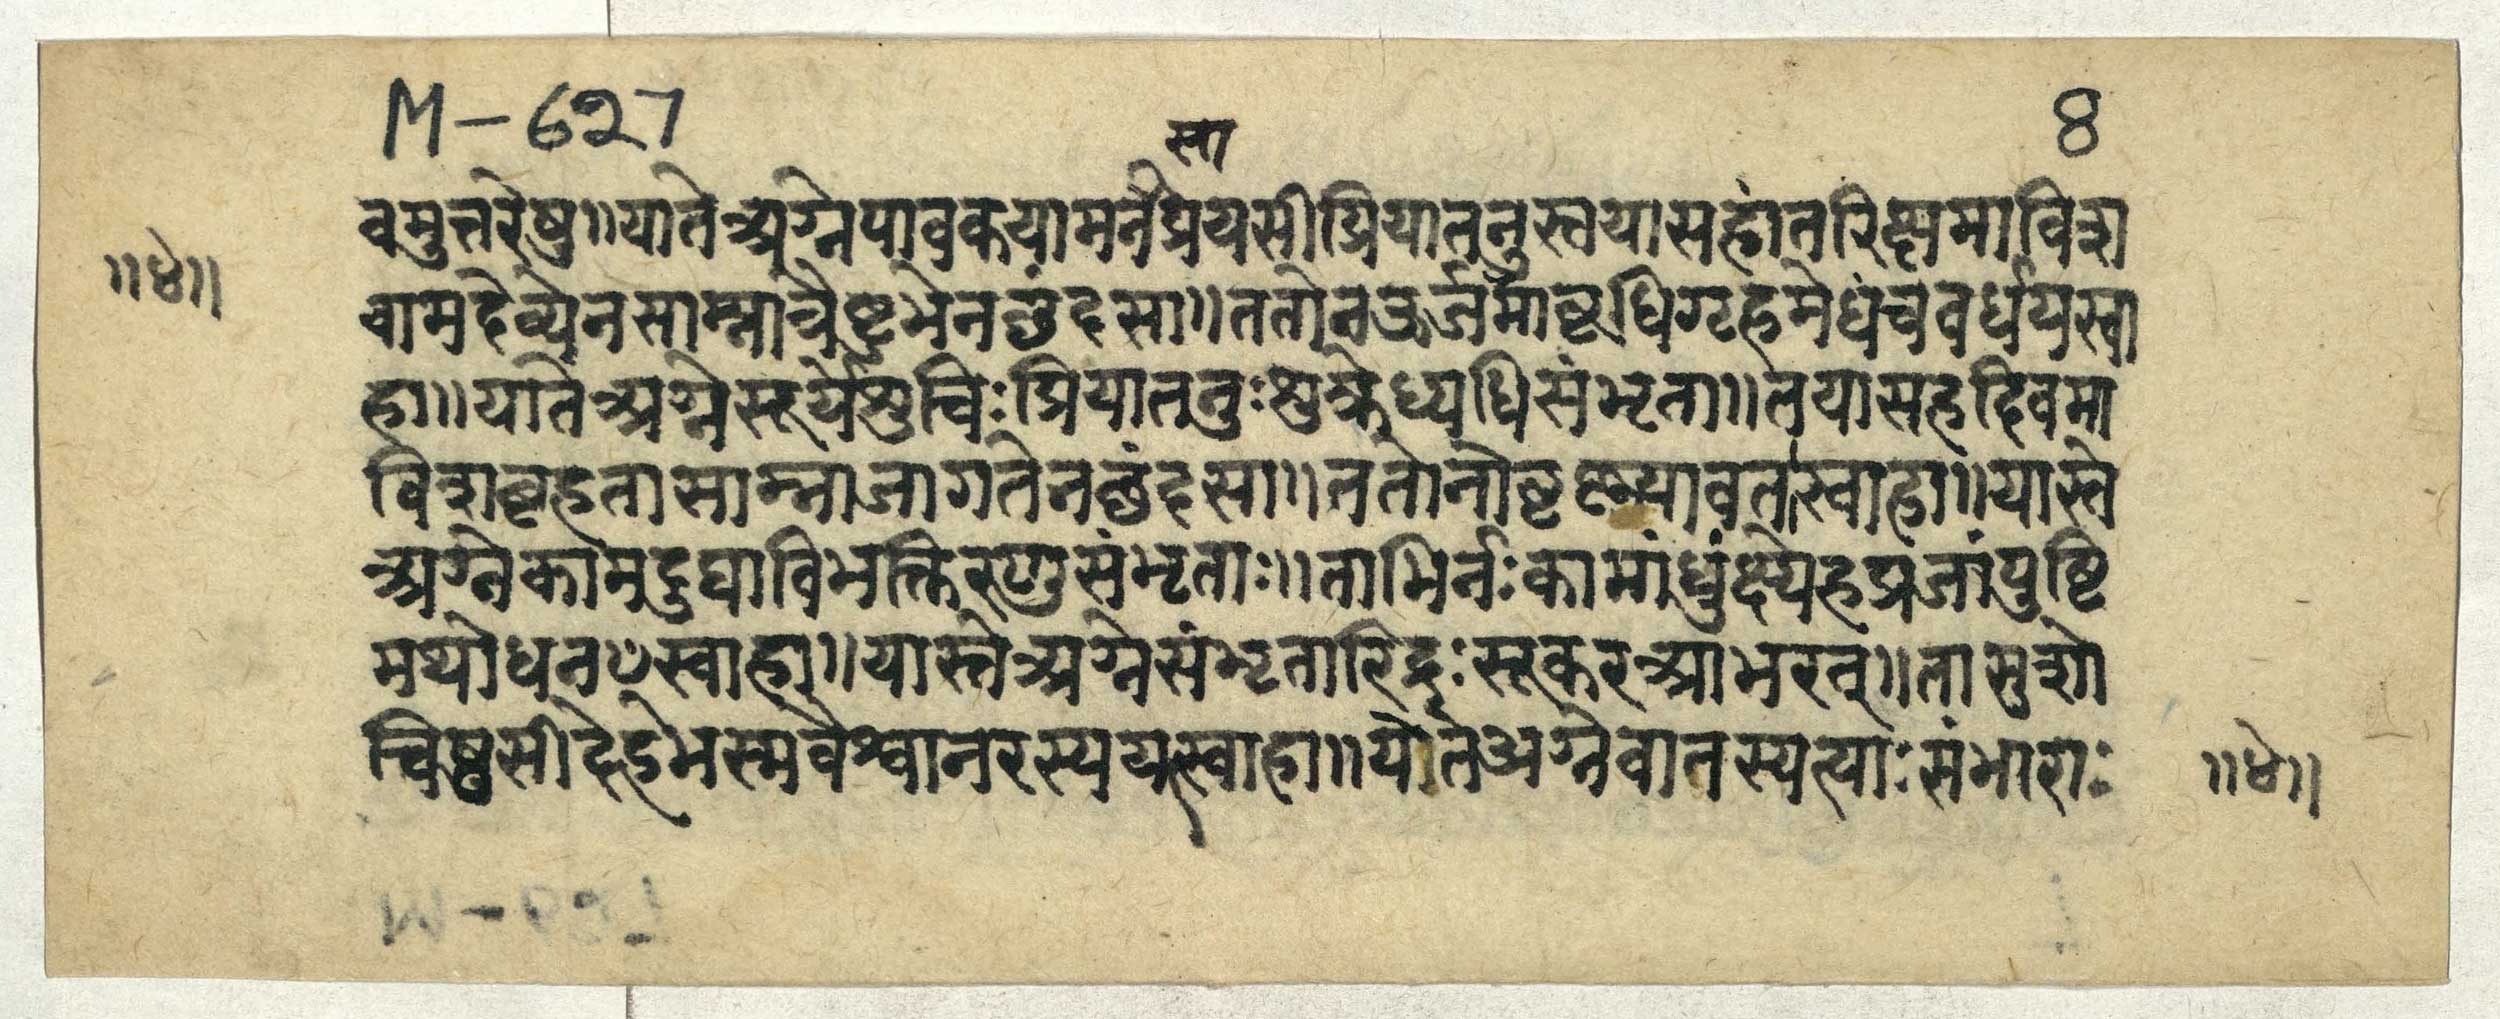 M-627
४
स्वा
वमुत्तरेषु॥यातेअग्नेपावकयामनेप्रेयसीप्रियातनुस्तयासहांतरिक्षमाविश
॥४॥
वामदेव्येनसाम्नात्रैष्टुभेनछंदसा॥ततोनऊर्जमाकृधिगृहमेधंचवर्धयस्वा
हा॥यातेअग्नेसूर्येशुचिःप्रियातनुःशुक्रेध्यधिसंभृता॥तयासहदिवमा
विशबृहतासाम्नाजागतेनछंदसा॥ततोनोवृष्ट्यावतस्वाहा॥यास्ते
अग्नेकामदुघाविभक्तिरणुसंभृताः॥ताभिर्नःकामांधुंक्ष्येहप्रजांपुष्टि
मथोधनꣳस्वाहा॥यास्तेअग्नेसंभृतारिंद्रःसूकरआभरत्॥तासुशो
चिष्षुसीदेहभस्मवैश्वानरस्ययत्स्वाहा॥यातेअग्नेवानस्यत्याःसंभाराः
॥४॥